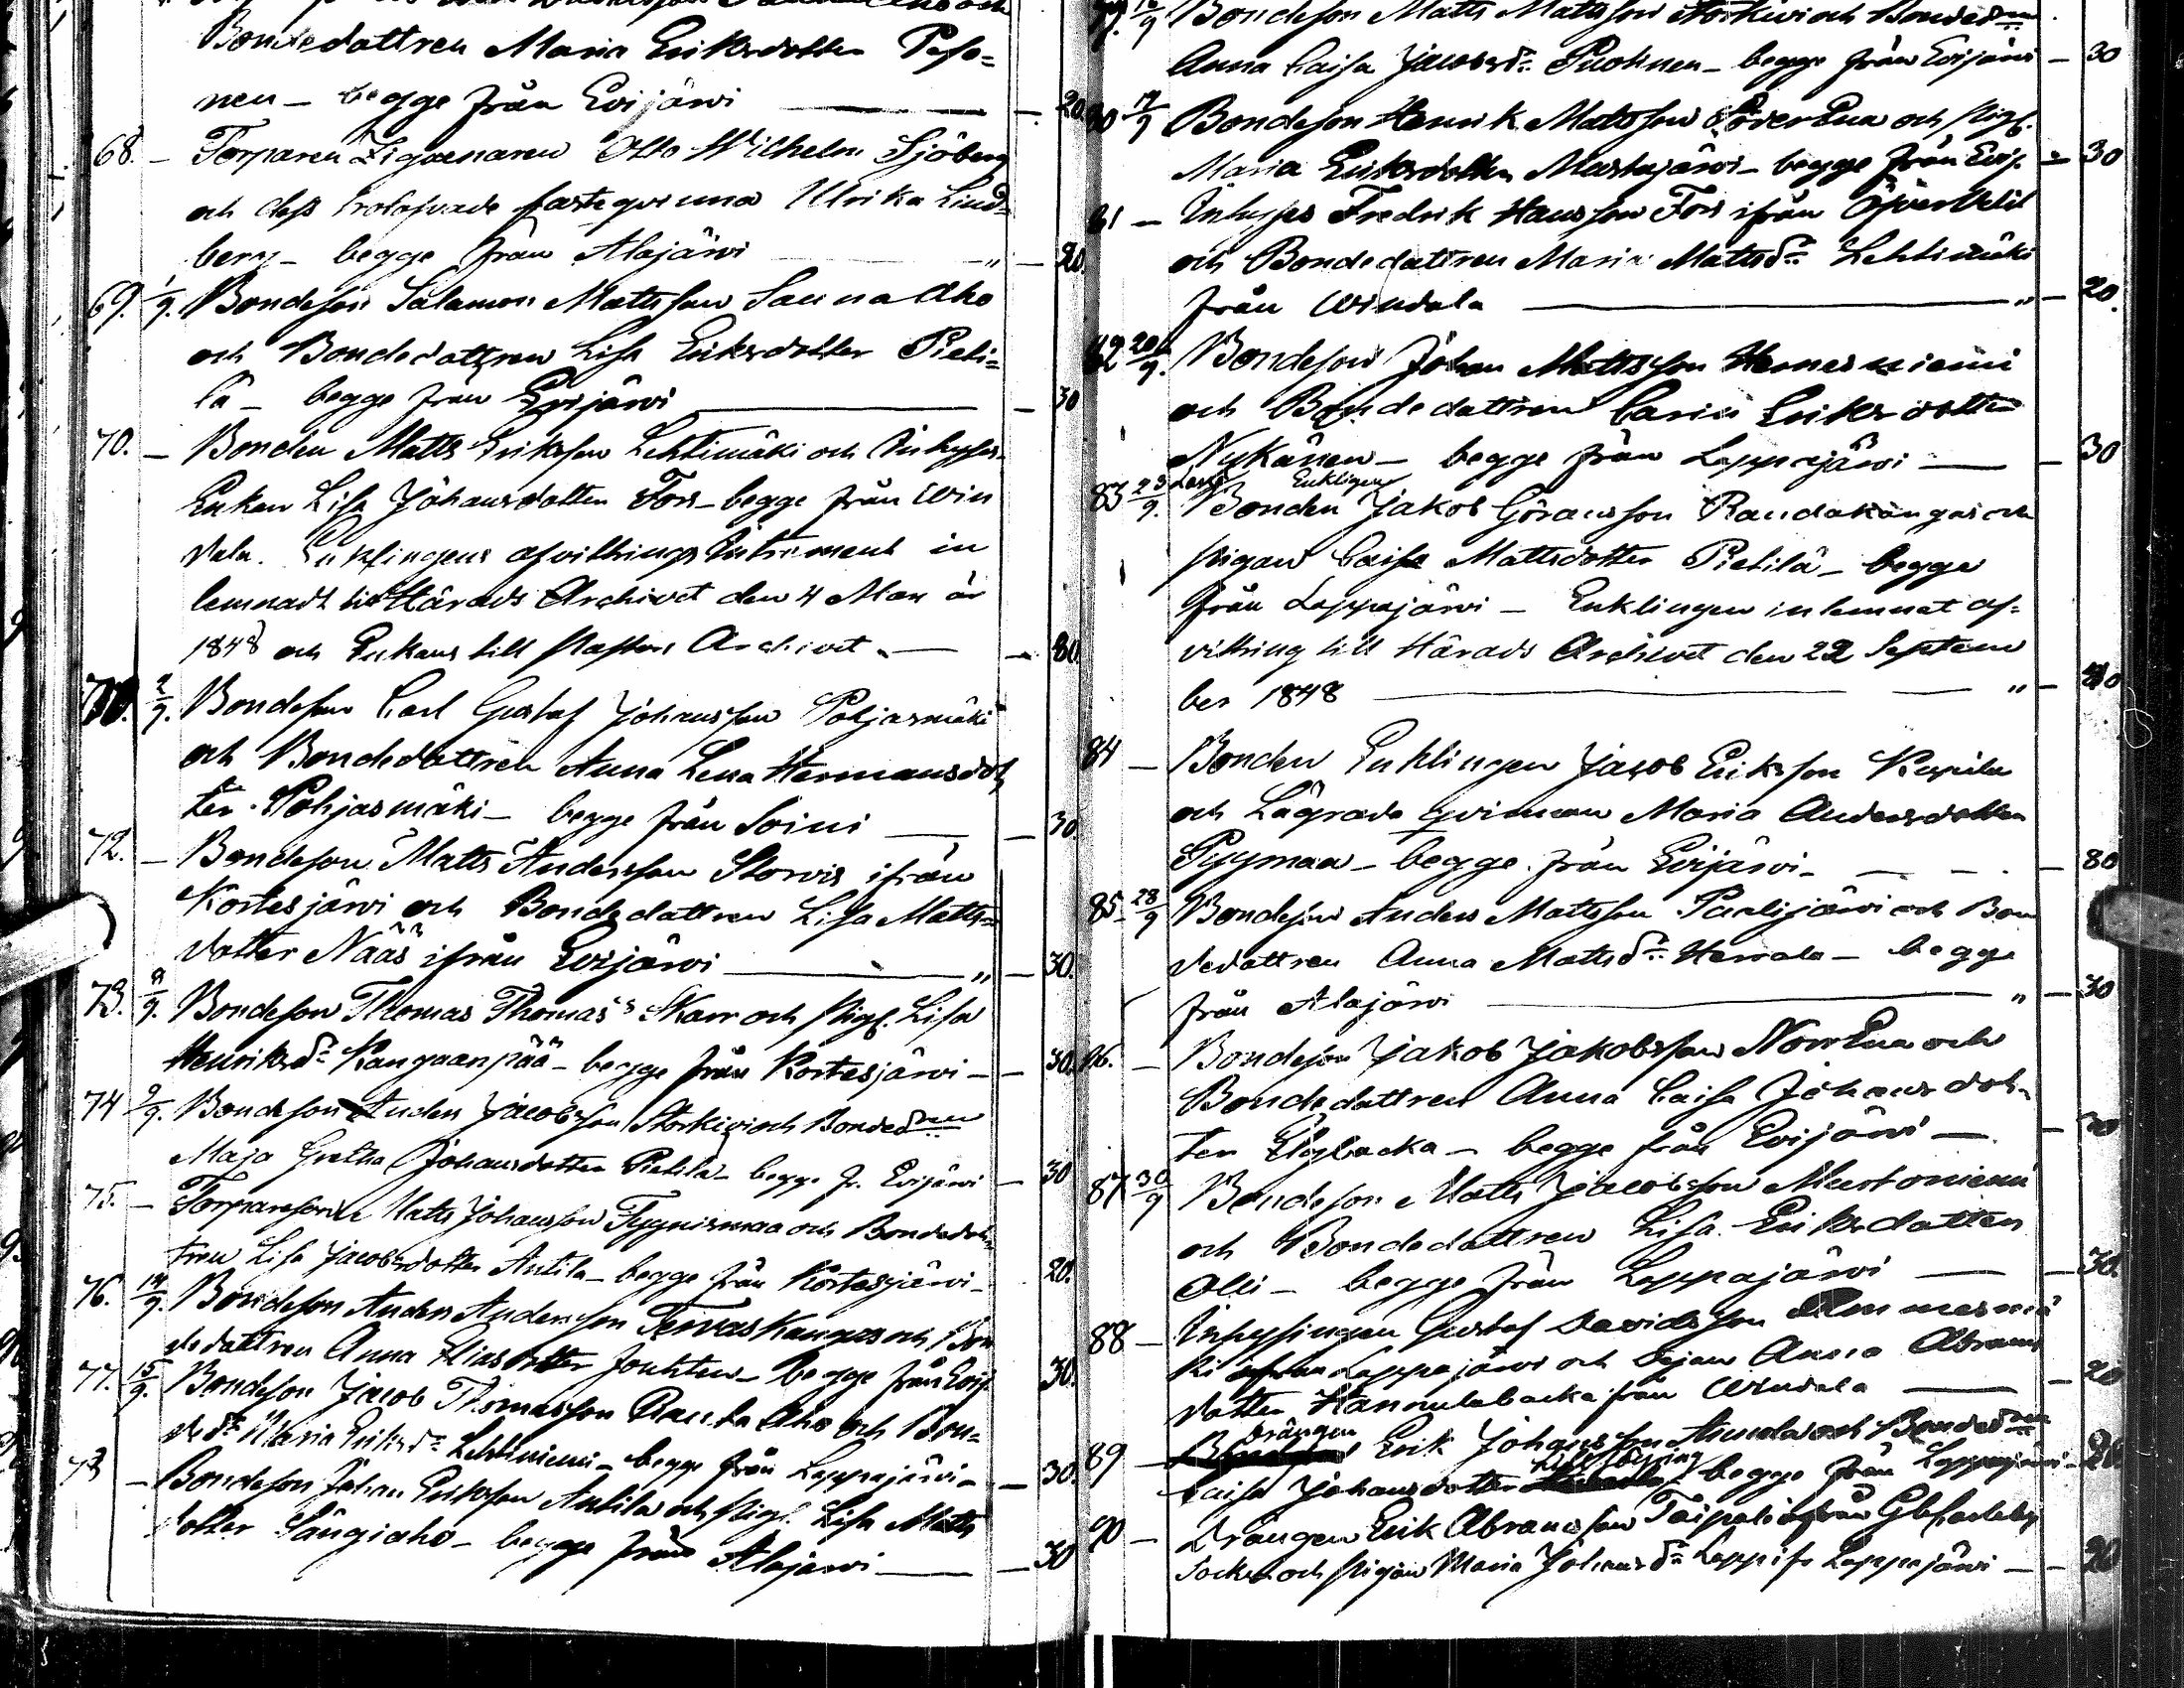 Bondedattren Maria Eriksdotter Peso=
nen – begge från Evijärwi — 20.
68. – Torparen Zigoenaren Otto Wilhelm Sjöberg
och dess trolofvade fästeqvinna Ulrika Lind=
berg – begge från Alajärwi — " — 20.
69. 1/9. Bondeson Salamon Mattsson Sauna Aho
och Bondedattren Lisa Eriksdotter Pieti=
lä – begge från Evijärwi — 30
70. – Bonden Matts Eriksson Lehtimäki och Inhyses
Enkan Lisa Johansdotter Fors – begge från Win
dala. Enklingens afvittrings Instrument in
lemnadt till Härads Archivet den 4 Mars år
1848 och Enkans till Pastors Archivet. — 80.
2/9. Bondeson Carl Gustaf Johansson Pohjasmäki
och Bondedattren Anna Lena Hermansdot
ter Pohjasmäki – begge från Soini — 30.
72. – Bondeson Matts Andersson Storvis ifrån
Kortesjärvi och Bondedattren Lisa Matts=
dotter Nääs ifrån Evijärwi — " — 30.
73. 9/9. Bondeson Thomas Thomass Skarr och Pig. Lisa
Henriksdr Kangaanpää – begge från Kortesjärvi — 30.
74 9/9. Bondeson Anders Jacobsson Storkivi och Bondedren
Maja Gretha Johansdotter Pietilä – begge fr. Evijärwi — 30
75. – Torparesonen Matts Johansson Tyynismaa och Bondedot
tren Lisa Jacobsdotter Antila – begge från Kortesjärvi – 20.
76. 14/9. Bondeson Anders Andersson Terwaskangas och Bon
dedattren Anna Eliasdotter Jouhten – begge från Evij. 30.
77. 15/9. Bondeson Jacob Thomasson Rauta Aho och Bon=
dedr Maria Eriksdr Lehtiniemi – begge från Lappajärvi – 30.
78 – Bondeson Johan Eriksson Antila och Pig. Lisa Matts
dotter Sängiaho – begge från Alajärwi — 30
79. Bondeson Matts Mattsson Storkivi och Bondedren
Anna Caisa Jacobsdr Puolinen – begge från Evijärwi — 30
80 17/9 Bondeson Henrik Mattsson Söver Ena och Pig.
Maria Eriksdotter Mastojärwi – begge från Evij. — 30
81 – Inhyses Fredrik Hansson Fors ifrån Öfver Vetil
och Bondedattren Maria Mattsdr Lehtimäki
från Windala — " — 20.
82 20/9. Bondeson Johan Mattsson Hernesniemi
och Bondedattren Carin Eriksdotter
Nykänen – begge från Lappajärvi — 30
83 23/9. Enklingen
Bonden Jakob Göransson Raudakangas och
Pigan Caisa Mattsdotter Pietilä – begge
från Lappajärvi – Enklingen inlemnat af=
vittring till Härads Archivet den 22 Septem
ber 1848 — " —
84 – Bonden Enklingen Jacob Eriksson Kupila
och Lägrade qvinnan Maria Andersdotter
Pyymaa – begge från Evijärwi – 80
85. 28/9 Bondeson Anders Mattsson Paalijärvi och Bon
dedattren Anna Mattsdr Herrala – begge
från Alajärvi — " — 30
86. – Bondeson Jakob Jakobsson Norr Ena och
Bondedattren Anna Caisa Johansdot=
ter Högbacka – begge från Evijärvi — 30
87 30/9 Bondeson Matts Jacobsson Murtoniemi
och Bondedattren Lisa Eriksdotter
Olli – begge från Lappajärvi — 30.
88 – Inhysingen Gustaf Davidsson Ammesmä
ki Lappajärvi och Anna Abrams
dotter Hannulabacka från Windala — 20
89 – Drängen Erik Johansson Annala och Bondedren
Caisa Johansdotter begge från Lappajärvi – 20
90 – Drängen Erik Abramsson Taipale ifrån Glcarleby
Socken och Pigan Maria Johansdr Lappi fr Lappajärvi — 20